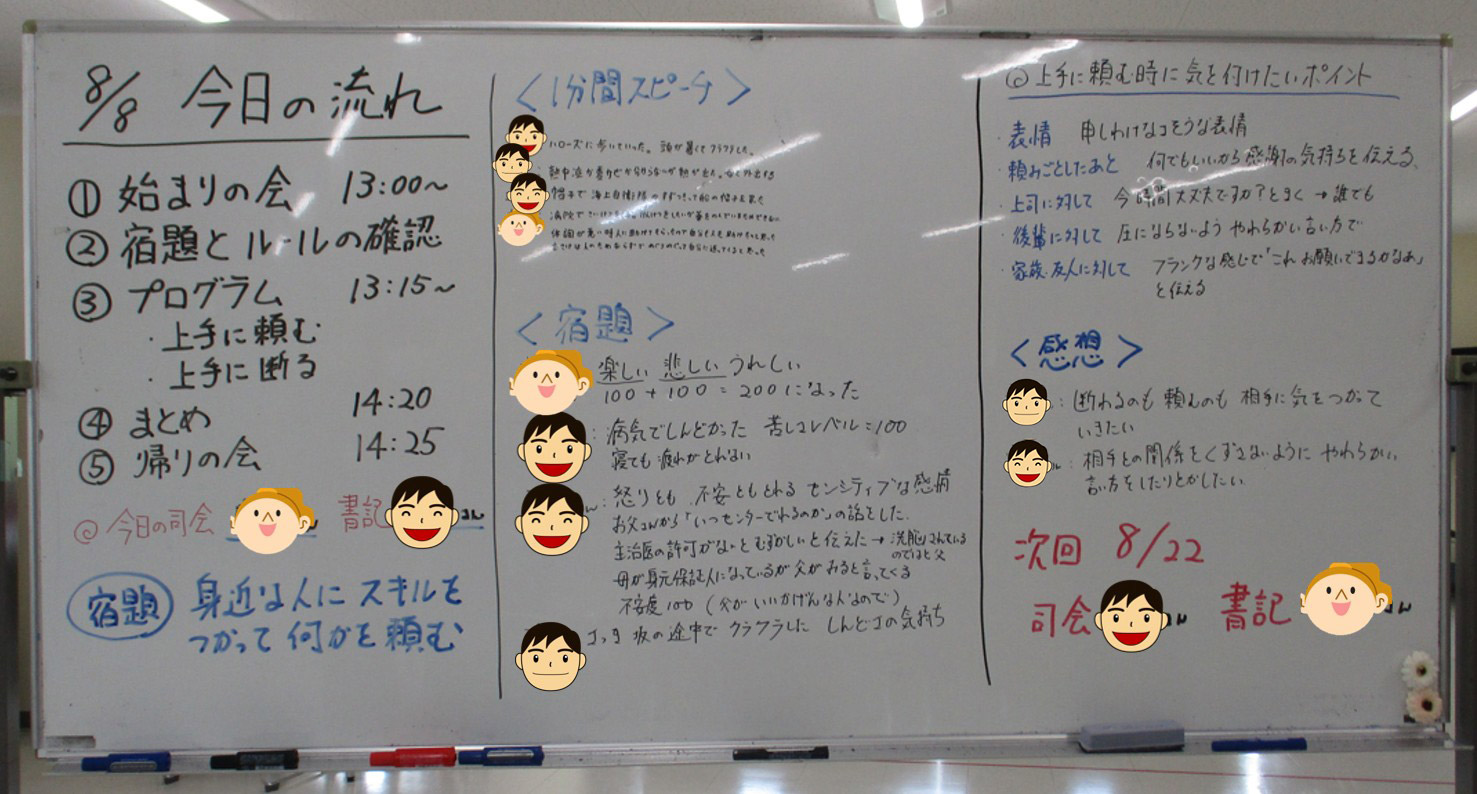 8/8 今日の流れ
① 始まりの会 13:00~
② 宿題とルールの確認
③ プログラム 13:15~
・上手に頼む
・上手に断る
④ まとめ 14:20
⑤ 帰りの会 14:25
◎今日の司会 さん 書記 さん
宿題 身近な人にスキルを
つかって何かを頼む
<1分間スピーチ>
ハローズに歩いていった。頭が暑くてクラクラした。
<宿題>
楽しい 悲しい うれしい
100+100=200になった
:病気でしんどかった 苦しさレベル=100
寝ても疲れがとれない
ん:怒りとも、不安ともとれる センシティブな感情
お父さんから「いつセンターでれるのか」の話をした。
主治医の許可がないとむずかしいと伝えた→洗脳されている
のではと父
母が身元保証人になっているが父がみると言ってくる
不安度100 (父がいいかげんな人なので)
さっき坂の途中でクラクラした しんどさの気持ち
◎上手に頼む時に気を付けたいポイント
・表情 申しわけなさそうな表情
・頼みごとしたあと 何でもいいから感謝の気持ちを伝える、
・上司に対して 今お時間大丈夫ですか?ときく→誰でも
・後輩に対して 圧にならないよう やわらかい言い方で
・家族・友人に対して フランクな感じで「これお願いできるかなあ」
と伝える
<感想>
:断わるのも頼むのも 相手に気をつかって
いきたい
ん:相手との関係をくずさないように やわらかい
言い方をしたりとかしたい
次回 8/22
司会 さん 書記 さん